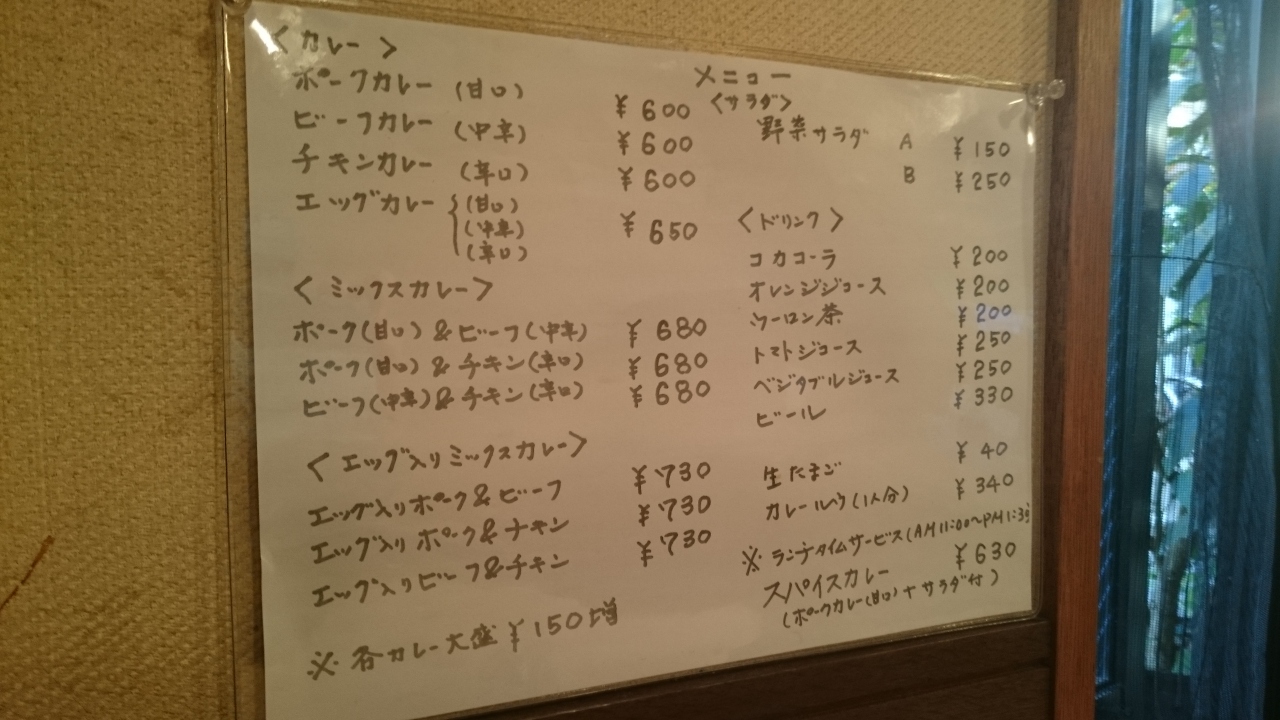 メニュー
<カレー>
ポークカレー (甘口) ¥600
ビーフカレー (中辛) ¥600
チキンカレー (辛口) ¥600
エッグカレー (甘口) ¥650
(中辛)
(辛口)
<ミックスカレー>
ポーク(甘口)&ビーフ(中辛) ¥680
ポーク(甘口)&チキン(辛口) ¥680
ビーフ(中辛)&チキン(辛口) ¥680
<エッグ入りミックスカレー>
エッグ入りポーク&ビーフ ¥730
エッグ入りポーク&チキン ¥730
エッグ入りビーフ&チキン ¥730
※ 各カレー大盛¥150増
<サラダ>
野菜サラダ A ¥150
B ¥250
<ドリンク>
コカコーラ ¥200
オレンジジュース ¥200
ウーロン茶 ¥200
トマトジュース ¥250
ベジタブルジュース ¥250
ビール ¥330
生たまご ¥40
カレールウ(1人分) ¥340
※ ランチタイムサービス(AM11:00~PM1:3
スパイスカレー ¥630
(ポークカレー(甘口)+サラダ付)